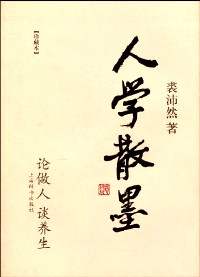 【珍藏本】
人学散墨
裘沛然 著
论做人 谈养生
上海辞书出版社